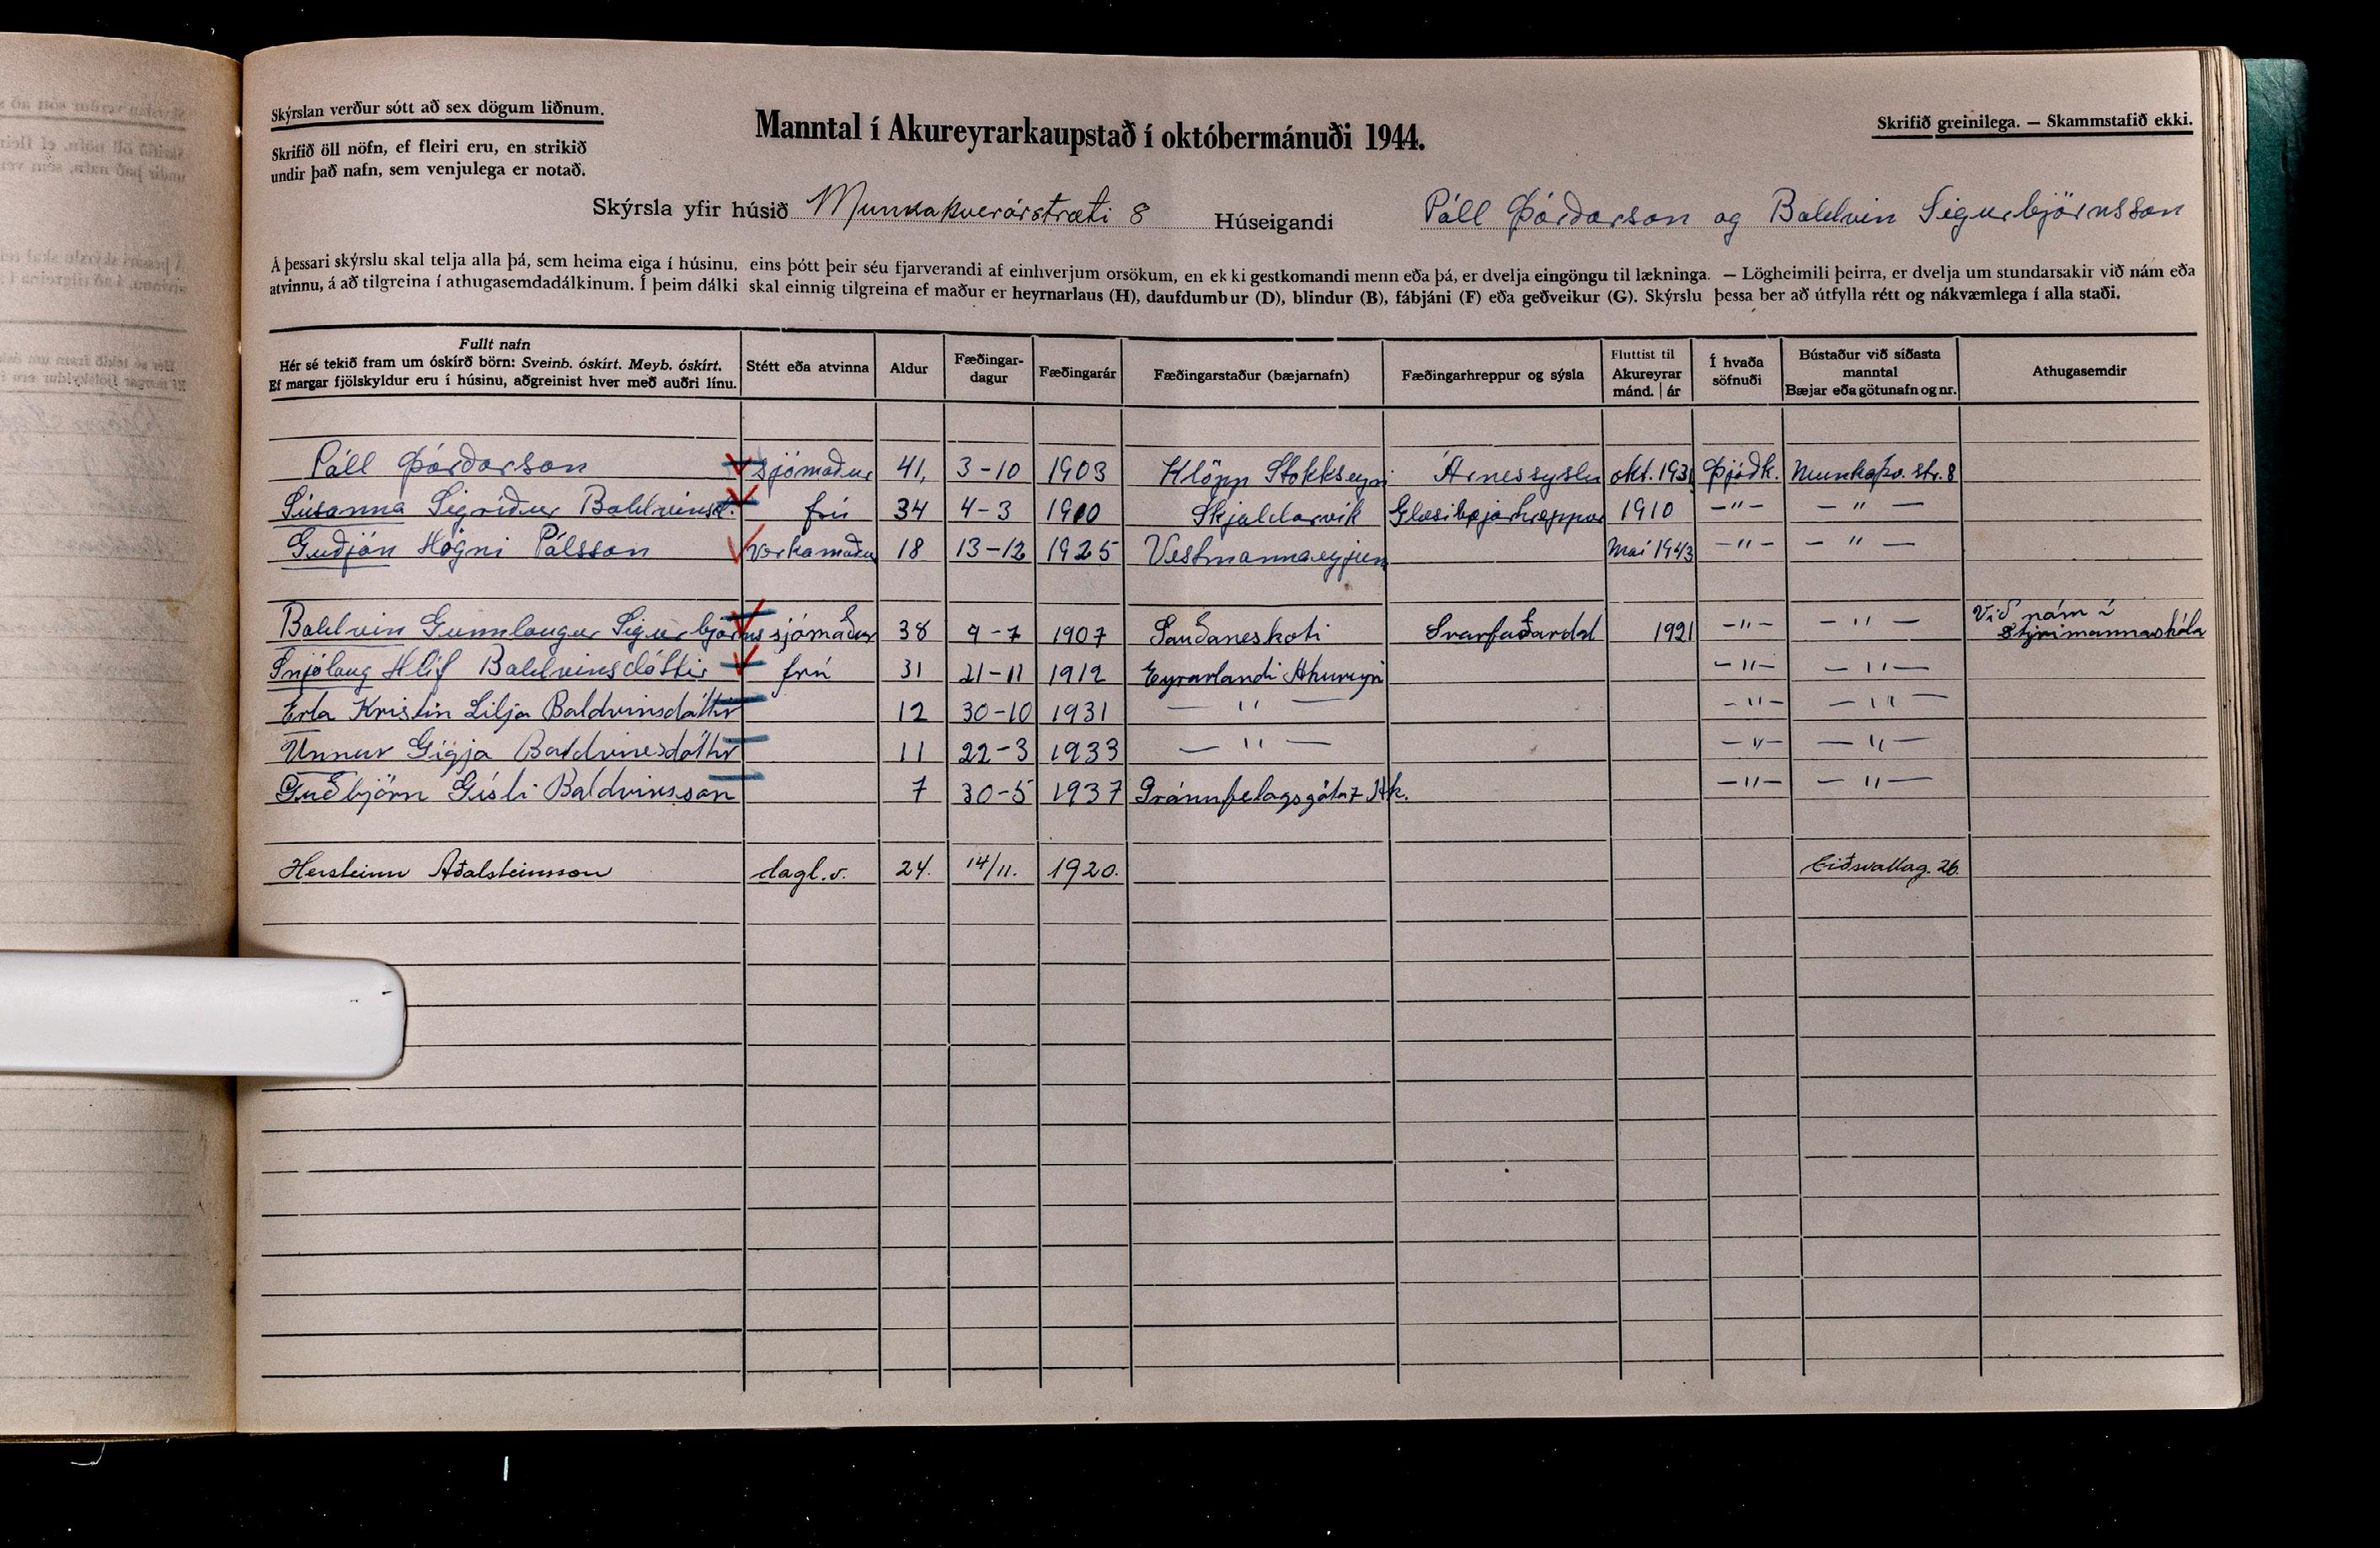 Skýrslan verður sótt að sex dögum liðnum.
Skrifið öll nöfn, ef fleiri eru, en strikið
undir það nafn, sem venjulega er notað.
Manntal í Akureyrarkaupstað í októbermánuði 1944.
Skrifið greinilega. — Skammstafið ekki.
Skýrsla yfir húsið Munkaþverárstræti 8 Húseigandi Páll Þórðarson og Baldvin Sigurbjörnsson
Á þessari skýrslu skal telja alla þá, sem heima eiga í húsinu, eins þótt þeir séu fjarverandi af einhverjum orsökum, en ekki gestkomandi menn eða þá, er dvelja eingöngu til lækninga. — Lögheimili þeirra, er dvelja um stundarsakir við nám eða
atvinnu, á að tilgreina í athugasemdadálkinum. Í þeim dálki skal einnig tilgreina ef maður er heyrnarlaus (H), daufdumbur (D), blindur (B), fábjáni (F) eða geðveikur (G). Skýrslu þessa ber að útfylla rétt og nákvæmlega í alla staði.
Fullt nafn
Hér sé tekið fram um óskírð börn: Sveinb. óskírt. Meyb. óskírt.
Ef margar fjölskyldur eru í húsinu, aðgreinist hver með auðri línu.
Stétt eða atvinna
Aldur
Fæðingar-
dagur
Fæðingarár
Fæðingarstaður (bæjarnafn)
Fæðingarhreppur og sýsla
Fluttist til
Akureyrar
mánd. | ár
Í hvaða
söfnuði
Bústaður við síðasta
manntal
Bæjar eða götunafn og nr.
Athugasemdir
Páll Þórðarson sjómaður 41, 3-10 1903 Klöpp Stokkseyri Árnessyslu okt. 1931 Þjóðk. Munkaþv. str. 8
Súsanna Sigríður Baldvinsd. frú 34 4-3 1910 Skjaldarvik Glæsibæjarhreppur 1910 -"- -"-
Guðjón Högni Pálsson verkamaður 18 13-12 1925 Vestmannaeyjum Maí 1943 -"- -"-
Baldvin Gunnlaugur Sigurbjörns sjómaður 38 9-7 1907 Sauðaneskoti Svarfaðardal 1921 -"- -"- Við nám í
Stýrimannaskóla
Snjólaug Hlíf Baldvinsdóttir frú 31 21-11 1912 Eyrarlandi Akureyri -"- -"-
Erla Kristín Lilja Baldvinsdóttir 12 30-10 1931 -"- -"- -"-
Unnur Gígja Baldvinesdóttir 11 22-3 1933 -"- -"- -"-
Guðbjörn Gísli Baldvinsson 7 30-5 1937 Gránufelagsgöta 7 Ak. -"- -"-
Hersteinn Aðalsteinsson dagl.v. 24. 14/11. 1920. Eiðsvallag. 26.